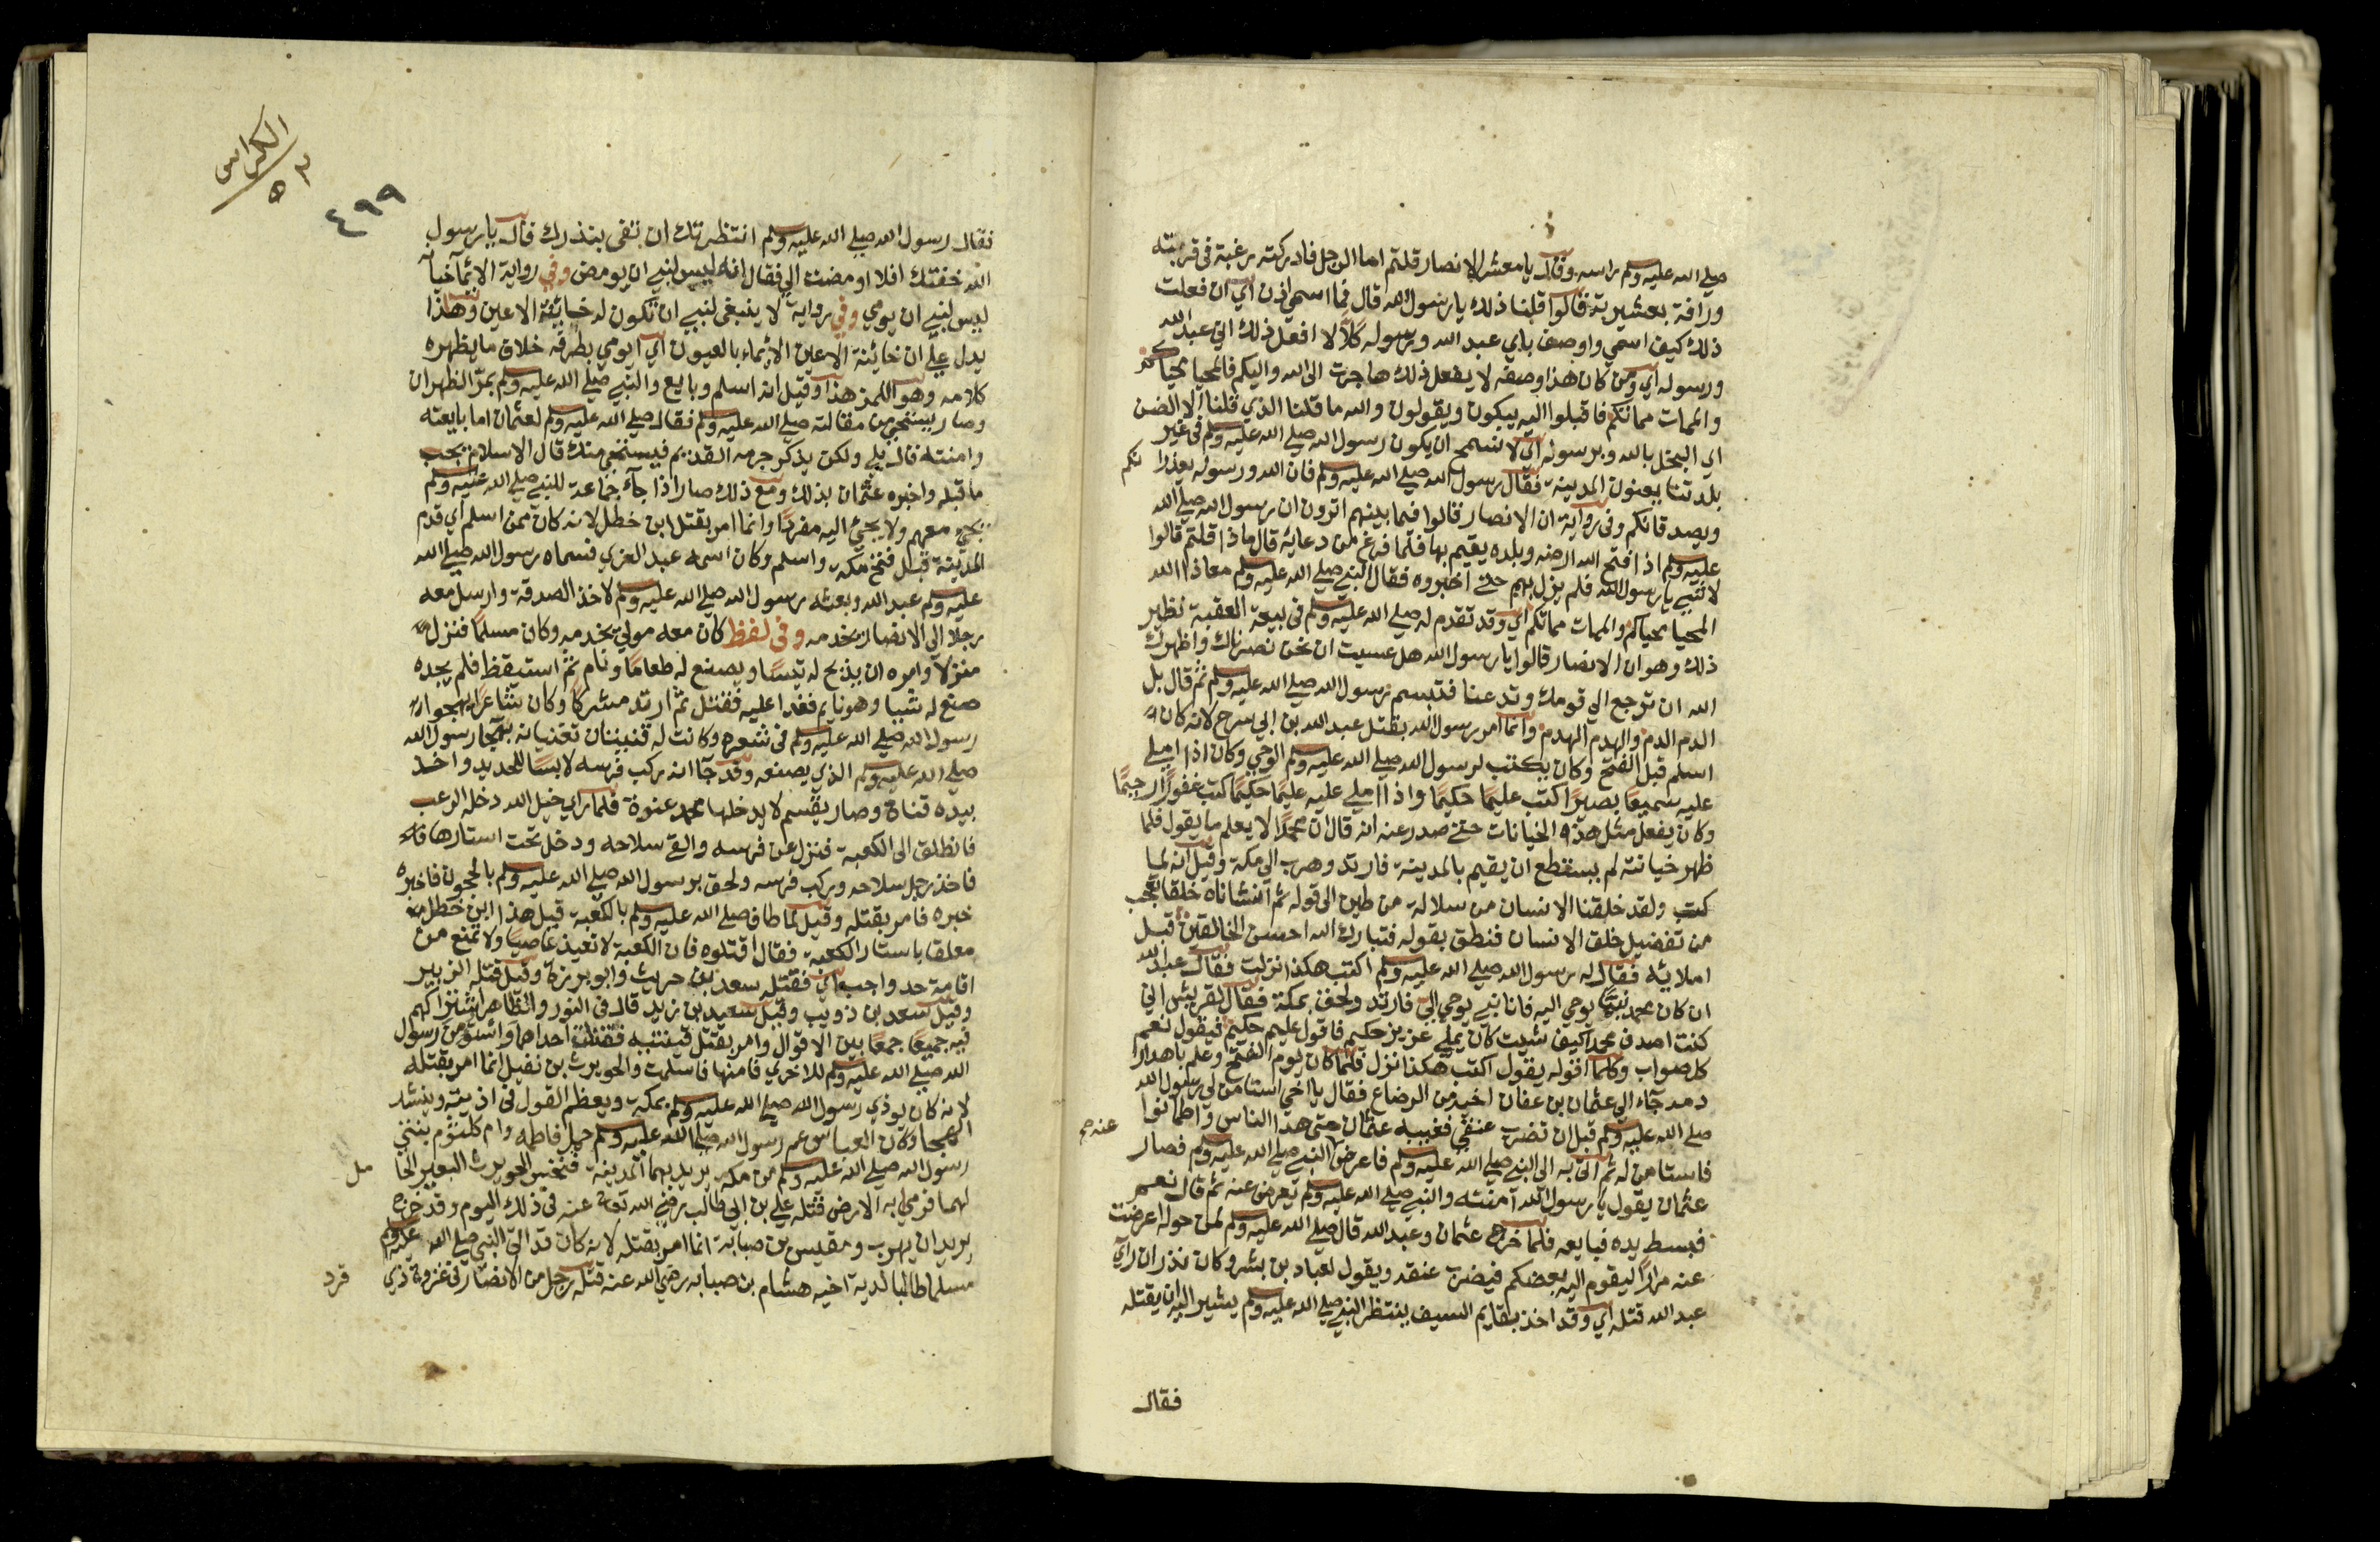 صلى الله عليه وسلم راسه وقال يا معشر الانصار قلتم اما الرجل فادركته رغبة في قريته
ورافة بعشيرته قالوا قلنا ذلك يا رسول الله قال فما اسمي اذن اي ان فعلت
ذلك كيف اسمي واوصف باني عبد الله ورسوله كلا لا افعل ذلك اني عبد الله
ورسوله اي ومن كان هذا وصفه لا يفعل ذلك هاجرت الى الله واليكم فالمحيا محياكم
والممات مماتكم فاقبلوا اليه يبكون ويقولون والله ما قلنا الذي قلنا الا الضن
اي البخل بالله وبرسوله اي لا نسمح ان يكون رسول الله صلى الله عليه وسلم في غير
بلدتنا يعنون المدينة فقال رسول الله صلى الله عليه وسلم فان الله ورسوله يعذرانكم
ويصدقانكم وفي رواية ان الانصار قالوا فيما بينهم اترون ان رسول الله صلى الله
عليه وسلم اذا فتح الله ارضه وبلده يقيم بها فلما فرغ من دعايه قال ماذا قلتم قالوا
لا شي يا رسول الله فلم يزل بهم حتى اخبروه فقال النبي صلى الله عليه وسلم معاذ الله
المحيا محياكم والممات مماتكم اي وقد تقدم له صلى الله عليه وسلم في بيعة العقبة نظير
ذلك وهو ان الانصار قالوا يا رسول الله هل عسيت ان نحن نصرناك واظهرك
الله ان ترجع الى قومك وتدعنا فتبسم رسول الله صلى الله عليه وسلم ثم قال بل
الدم الدم والهدم الهدم وانما امر رسول الله بقتل عبد الله بن ابي سرح لانه كان
اسلم قبل الفتح وكان يكتب لرسول الله صلى الله عليه وسلم الوحي وكان اذا املى
عليه سميعا بصيرا كتب عليما حكيما واذا املى عليه عليما حكيما كتب غفورا رحيما
وكان يفعل مثل هذه الخيانات حتى صدر عنه انه قال ان محمدا لا يعلم ما يقول فلما
ظهر خيانته لم يستطع ان يقيم بالمدينة فارتد وهرب الى مكة وقيل انه لما
كتب ولقد خلقنا الانسان من سلالة من طين الى قوله ثم انشاناه خلقا تعجب
من تفضيل خلق الانسان فنطق بقوله فتبارك الله احسن الخالقين قبل
املائه فقال له رسول الله صلى الله عليه وسلم اكتب هكذا نزلت فقال عبد الله
ان كان محمد نبيا يوحي اليه فانا نبي يوحي الي فارتد ولحق بمكة فقال لقريش اني
كنت اصرف محمدا كيف شيت كان يملي عزيز حكيم فاقول عليم حكيم فيقول نعم
كل صواب وكلما اقوله يقول اكتب هكذا نزل فلما كان يوم الفتح وعلم باهدار
دمه جاء الى عثمان بن عفان اخيه من الرضاع فقال يا اخي استامن لي رسول الله
صلى الله عليه وسلم قبل ان تضرب عنقي فغيبه عثمان حتى هدا الناس واطمانوا
فاستامن له ثم اتى به الى النبي صلى الله عليه وسلم فاعرض النبي صلى الله عليه وسلم فصار عنه صح
عثمان يقول يا رسول الله آمنته والنبي صلى الله عليه وسلم يعرض عنه ثم قال نعم
فبسط يده فبايعه فلما خرج عثمان وعبد الله قال صلى الله عليه وسلم لمن حوله اعرضت
عنه مرارا ليقوم اليه بعضكم فيضرب عنقه ويقول لعباد بن بشر وكان نذر ان راي
عبد الله قتله اي وقد اخذ بقايم السيف ينتظر النبي صلى الله عليه وسلم يشير اليه ان يقتله
فقال
الكراس
٥٣
٤٩٩
فقال رسول الله صلى الله عليه وسلم انتظرتك ان تفي بنذرك قال يا رسول
الله خفتك افلا اومضت الي فقال انه ليس لنبي ان يومض وفي رواية الايماخيانه
ليس لنبي ان يومي وفي رواية لا ينبغي لنبي ان تكون له خاينة الاعين وهذا
يدل على ان خائنة الاعين الايماء بالعيون اي ايومي بطرفه خلاف ما يظهره
كلامه وهو اللمز هذا وقيل انه اسلم وبايع والنبي صلى الله عليه وسلم بمر الظهران
وصار يستحي من مقابلته صلى الله عليه وسلم فقال صلى الله عليه وسلم لعثمان اما بايعته
وامنته قال بلى ولكن يذكر جرمه القديم فيستحي منك قال الاسلام يجب
ما قبله واخبره عثمان بذلك ومع ذلك صار اذا جاء جماعة للنبي صلى الله عليه وسلم
يجي معهم ولا يجئ اليه مفردا وانما امر بقتل ابن خطل لانه كان ممن اسلم اي قدم
المدينة قبل فتح مكة واسلم وكان اسمه عبد العزي فسماه رسول الله صلى الله
عليه وسلم عبد الله وبعثه رسول الله صلى الله عليه وسلم لاخذ الصدقة وارسل معه
رجلا الى الانصار يخدمه وفي لفظ كان معه مولى يخدمه وكان مسلما فنزل
منزلا وامره ان يذبح له تيسا ويصنع له طعاما ونام ثم استيقظ فلم يجده
صنع له شيا وهو نايم فعدا عليه فقتله ثم ارتد مشركا وكان شاعرا يهجو
رسول الله صلى الله عليه وسلم في شعره وكانت له قينتان تغنيانه بهجا رسول الله
صلى الله عليه وسلم الذي يصنعه وقد جا انه ركب فرسه لابسا للحديد واخذ
بيده قناة وصار يقسم لا يدخلها محمد عنوة فلما راي خيل الله دخله الرعب
فانطلق الى الكعبة فنزل عن فرسه والقى سلاحه ودخل تحت استارها
فاخذ رجل سلاحه وركب فرسه ولحق برسول الله صلى الله عليه وسلم بالحجون فاخبره
خبره فامر بقتله وقيل لما طاف صلى الله عليه وسلم بالكعبة قيل هذا ابن خطل
معلقا باستار الكعبة فقال اقتلوه فان الكعبة لا تعيذ عاصيا ولا تمنع من
اقامة حد واجب اي فقتله سعد بن حريث وابو برزة وقيل قتله الزبير
وقيل سعد بن ذويب وقيل سعيد بن زيد قال في النور والظاهر اشتراكهم
فيه جميعا جمعا بين الاقوال وامر بقتل قينتيه فقتلت احداهما واستومن رسول
الله صلى الله عليه وسلم للاخري فامنها فاسلمت والحويرث بن نفيل انما امر بقتله
لانه كان يوذي رسول الله صلى الله عليه وسلم بمكة ويعظم القول في اذيته وينشد
الهجا وكان العباس عم رسول الله صلى الله عليه وسلم حمل فاطمه وام كلثوم بنتي
رسول الله صلى الله عليه وسلم من مكة يريد بهما المدينة فنخس الحويرث البعير الحامل
لهما فرمي به الارض قتله علي بن ابي طالب رضي الله تعالى عنه في ذلك اليوم وقد خرج
يريد ان يهرب ومقيس بن صبابة انما امر بقتله لانه كان قد اتى النبي صلى الله عليه وسلم
مسلما طالبا لدية اخيه هشام بن صبابه رضي الله عنه قتله رجل من الانصار في غزوة ذي قرد